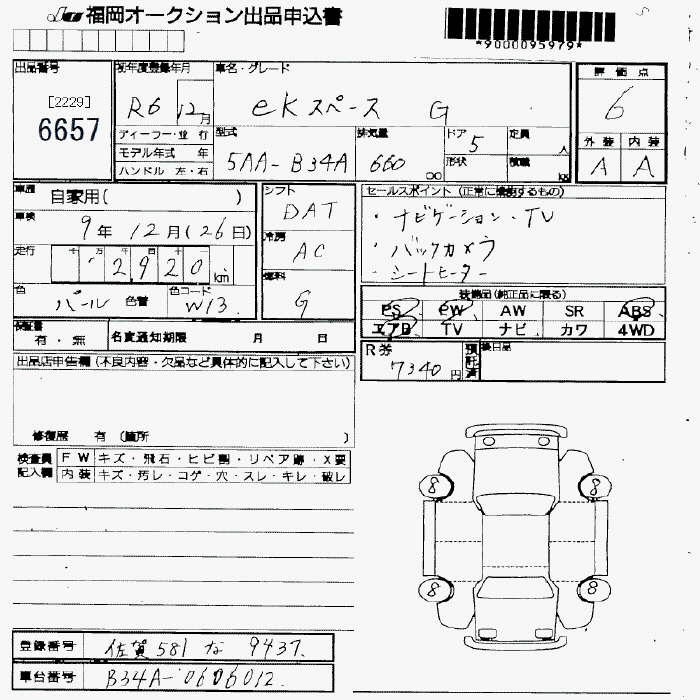 JU 福岡オークション出品申込書
*9000095979*
出品番号
[2229]
6657
初年度登録年月
R6 12月
車名・グレード
eKスペース G
評価点
6
外装 内装
A A
ディーラー・並行
モデル年式 年
ハンドル 左・右
型式
5AA-B34A
排気量
660 cc
ドア 5
形状
定員 人
積載 kg
車歴 自家用( )
車検 9年 12月(26日)
走行 十 万 千 百 十 一
2920 km
色 パール 色替
色コード W13
シフト DAT
冷房 AC
燃料 G
セールスポイント (正常に機動するもの)
・ナビゲーション・TV
・バックカメラ
・シートヒーター
装備品(純正品に限る)
PS PW AW SR ABS
エアB TV ナビ カワ 4WD
保証書 有・無
名変通知期限 月 日
R券 7340円
預託済
後日品
出品店申告欄 (不良内容・欠品など具体的に記入して下さい)
修復歴 有 (箇所 )
検査員記入欄
FW キズ・飛石・ヒビ割・リペア跡・X要
内装 キズ・汚レ・コゲ・穴・スレ・キレ・破レ
8 8
8 8
登録番号 佐賀 581 な 9437
車台番号 B34A-0606012